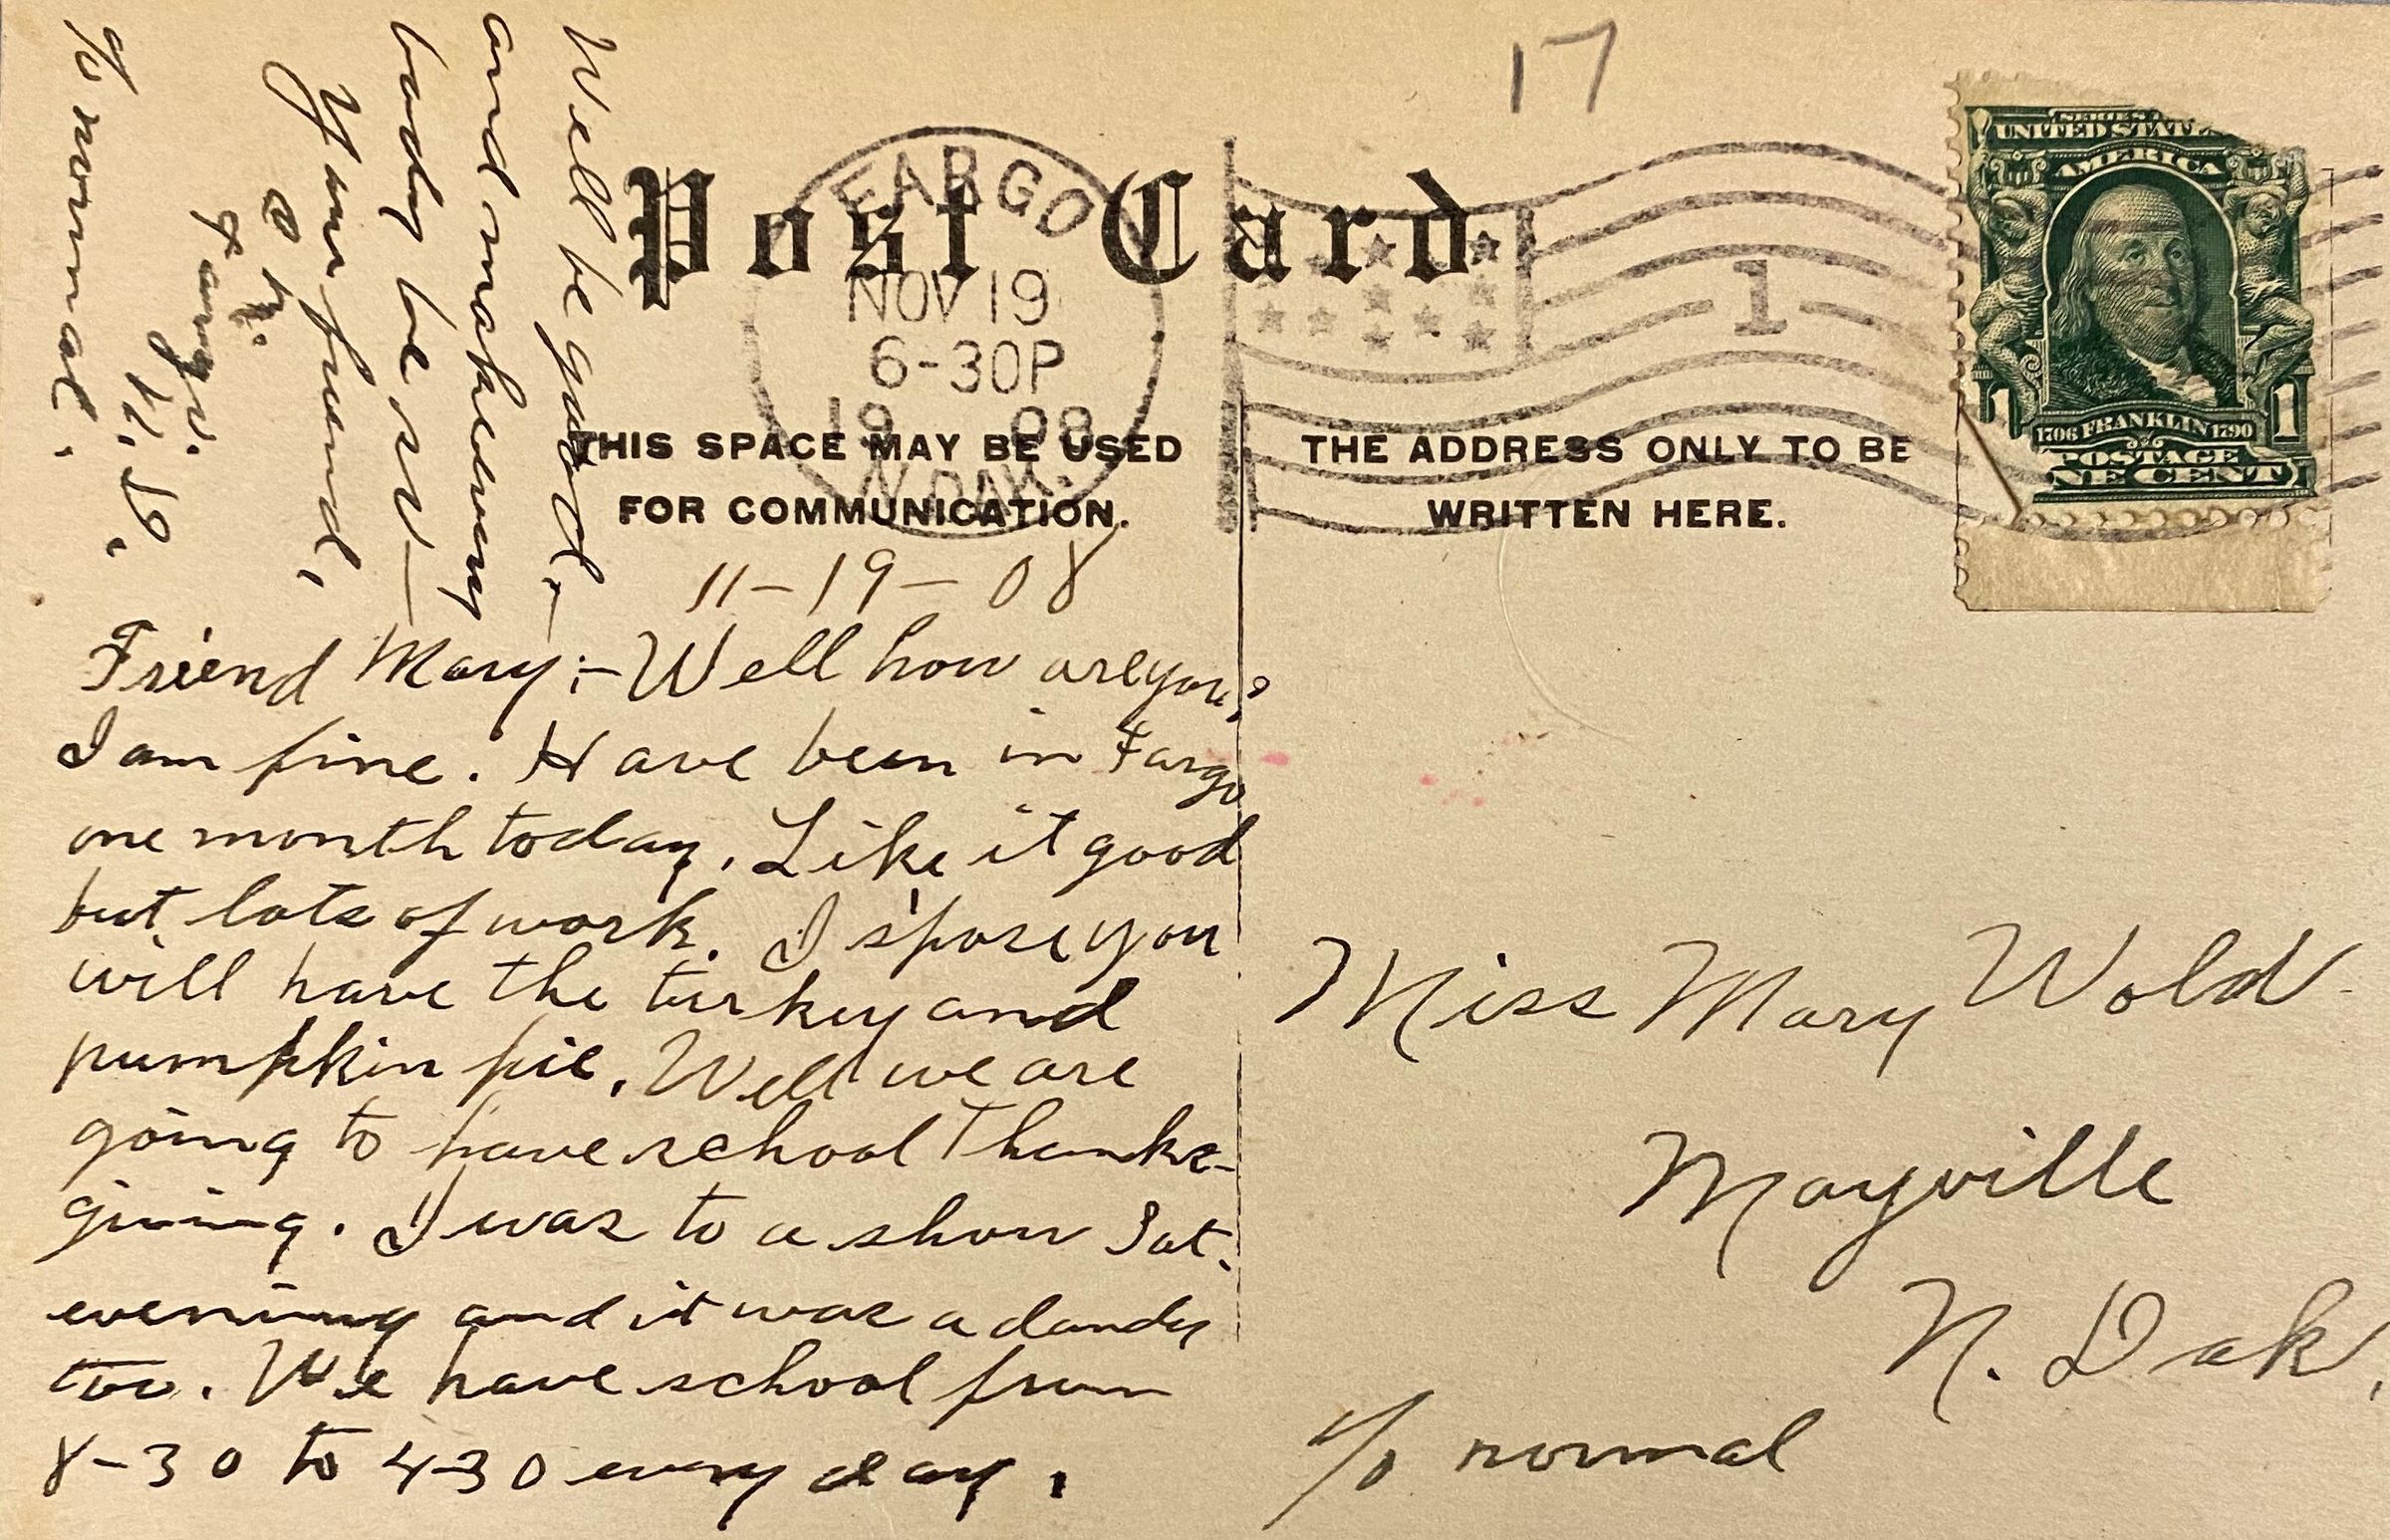 17
Post Card
FARGO
NOV 19
6-30P
19 08
N. DAK.
1
SERIES
UNITED STATES
AMERICA
1 1
1706 FRANKLIN 1790
POSTAGE
ONE CENT
THIS SPACE MAY BE USED
FOR COMMUNICATION.
THE ADDRESS ONLY TO BE
WRITTEN HERE.
11-19-08
Friend Mary:- Well how are you?
I am fine. Have been in Fargo
one month today. Like it good
but lots of work. I s'pose you
will have the turkey and
pumpkin pie. Well we are
going to have school Thanks-
giving. I was to a show Sat.
evening and it was a dandy
too. We have school from
8-30 to 4-30 every day.
Well be good,-
and make every
body be so-
Your friend,
Fargo.
N. D.
c/o normal.
Miss Mary Wold
Mayville
N. Dak.
c/o normal